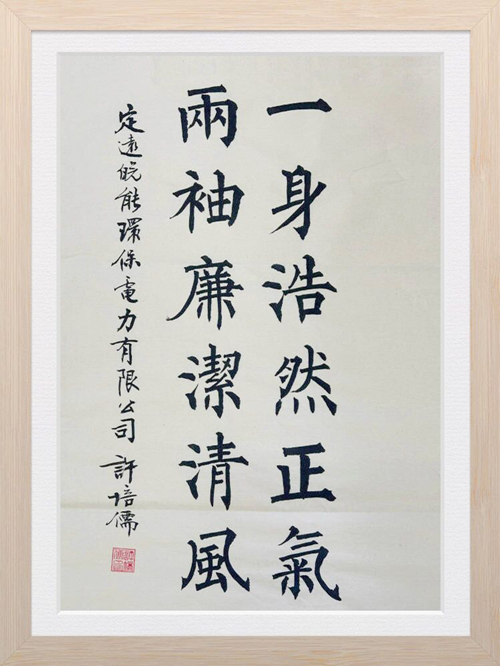 一身浩然正氣
兩袖廉潔清風
定遠皖能環保電力有限公司 許培儒